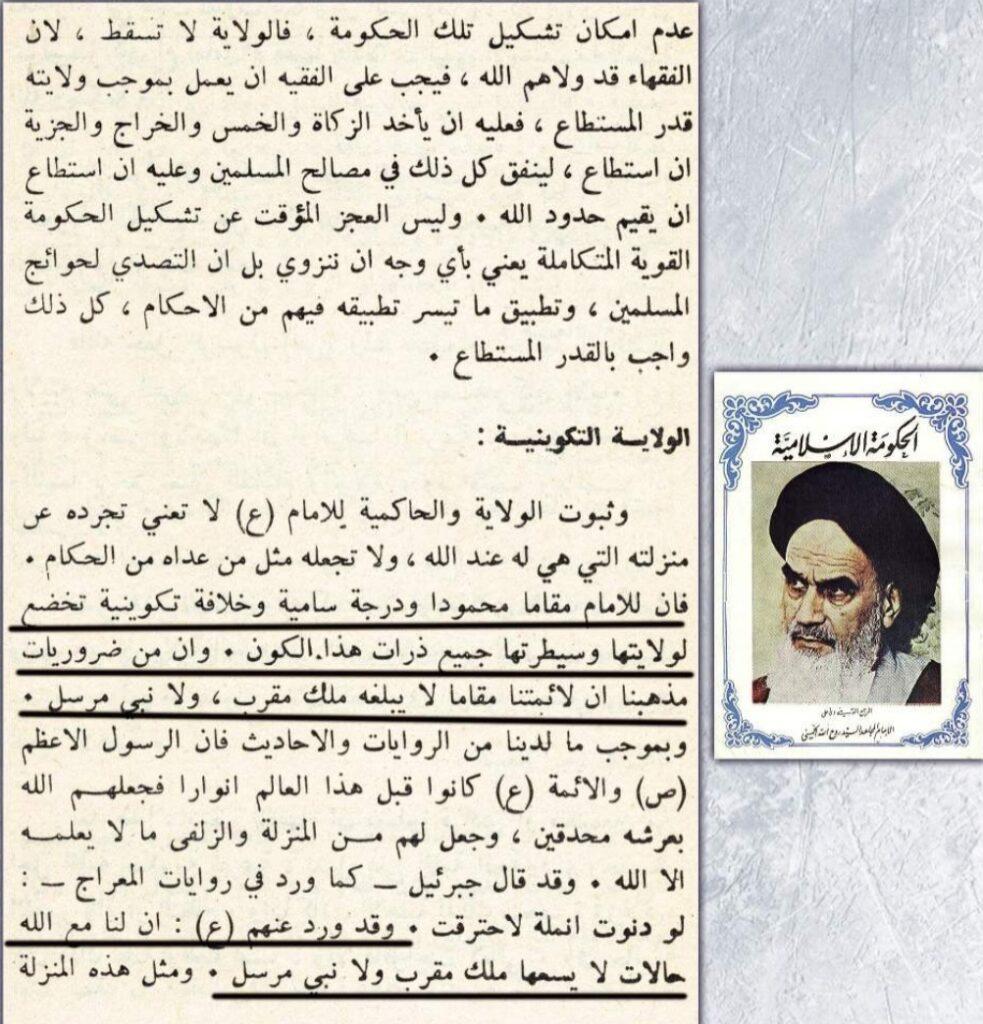 عدم امكان تشكيل تلك الحكومة ، فالولاية لا تسقط ، لان
الفقهاء قد ولاهم الله ، فيجب على الفقيه ان يعمل بموجب ولايته
قدر المستطاع ، فعليه ان يأخد الزكاة والخمس والخراج والجزية
ان استطاع ، لينفق كل ذلك في مصالح المسلمين وعليه ان استطاع
ان يقيم حدود الله • وليس العجز المؤقت عن تشكيل الحكومة
القوية المتكاملة يعني بأي وجه ان ننزوي بل ان التصدي لحوائج
المسلمين ، وتطبيق ما تيسر تطبيقه فيهم من الاحكام ، كل ذلك
واجب بالقدر المستطاع •
الولايـة التكوينيـة :
وثبوت الولاية والحاكمية للامام (ع) لا تعني تجرده عن
منزلته التي هي له عند الله ، ولا تجعله مثل من عداه من الحكام •
فان للامام مقاما محمودا ودرجة سامية وخلافة تكوينية تخضع
لولايتها وسيطرتها جميع ذرات هذا الكون • وان من ضروريات
مذهبنا ان لائمتنا مقاما لا يبلغه ملك مقرب ، ولا نبي مرسل •
وبموجب ما لدينا من الروايات والاحاديث فان الرسول الاعظم
(ص) والائمة (ع) كانوا قبل هذا العالم انوارا فجعلهـم الله
بعرشه محدقين ، وجعل لهم مـن المنزلة والزلفى ما لا يعلمـه
الا الله • وقد قال جبرئيل ــ كما ورد في روايات المعراج ــ :
لو دنوت انملة لاحترقت • وقد ورد عنهم (ع) : ان لنا مع الله
حالات لا يسعها ملك مقرب ولا نبي مرسل • ومثل هذه المنزلة
الحكومة الإسلامية